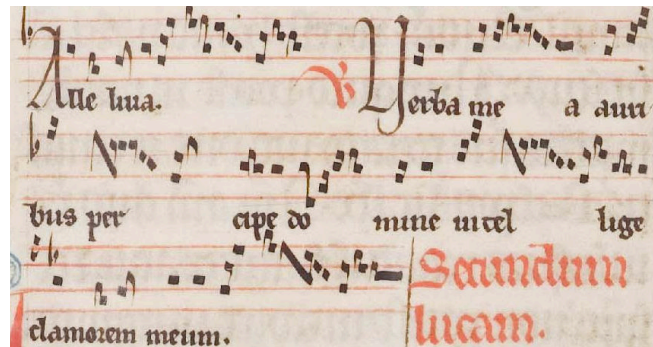 Alle luia. V Verba me a auri
bus per cipe do mine intel lige
clamorem meum. Secundum
lucam.